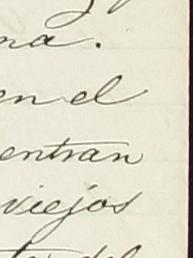 na.
en el
entran
viejos
del